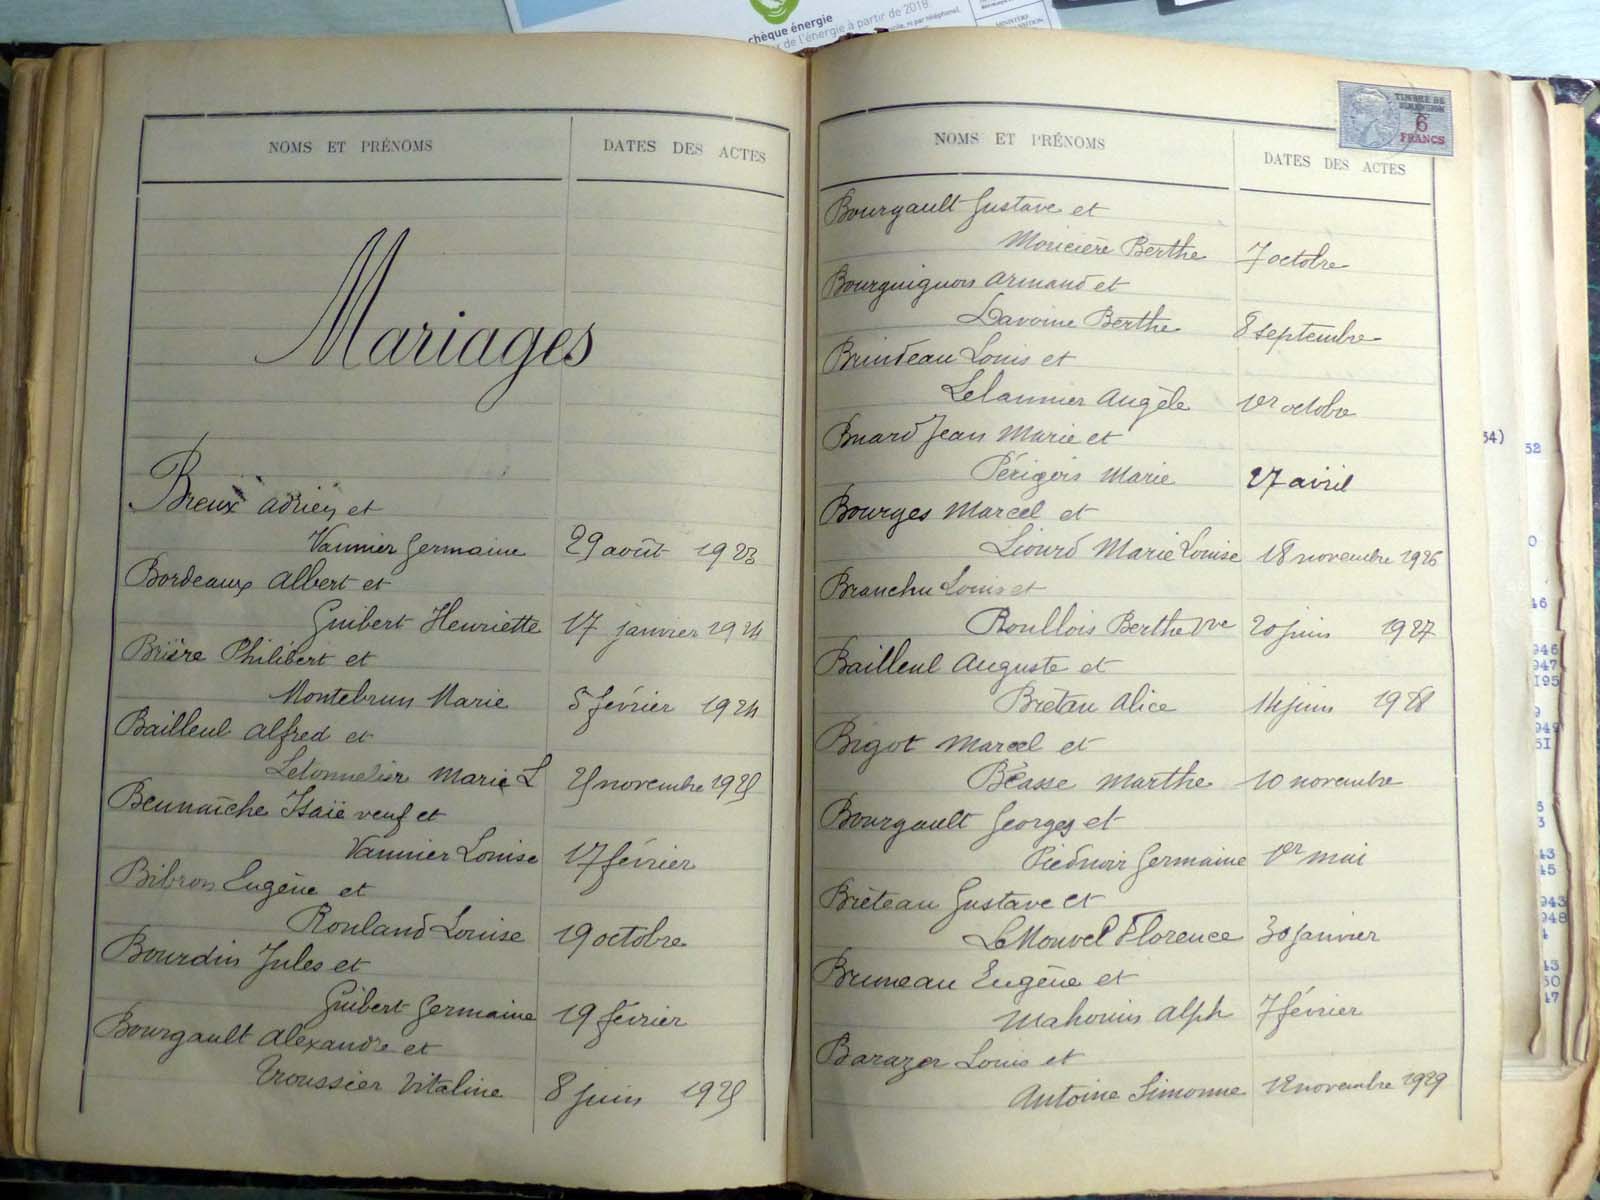 chèque énergie
de l'énergie à partir de 2018
NOMS ET PRÉNOMS
DATES DES ACTES
Mariages
Breux Adrien et
Vannier Germaine 29 août 1923
Bordeaux Albert et
Guibert Henriette 17 janvier 1924
Brière Philibert et
Montebrun Marie 5 février 1924
Bailleul Alfred et
Letonnelier Marie L 25 novembre 1925
Bennaïche Isaïe veuf et
Vannier Louise 17 février
Bibron Eugène et
Rouland Louise 19 octobre
Bourdin Jules et
Guibert Germaine 19 février
Bourgault Alexandre et
Troussier Vitaline 8 juin 1925
NOMS ET PRÉNOMS
DATES DES ACTES
TIMBRE DE
DIMENSION
6
FRANCS
Bourgault Gustave et
Moricière Berthe 7 octobre
Bourguignon Armand et
Davoine Berthe 8 septembre
Brindeau Louis et
Lelannier Angèle 1er octobre
Buard Jean Marie et
Périgois Marie 27 avril
Bourges Marcel et
Liourd Marie Louise 18 novembre 1926
Branchu Louis et
Roullois Berthe Vve 20 juin 1927
Bailleul Auguste et
Bretau Alice 14 juin 1928
Bigot Marcel et
Béasse Marthe 10 novembre
Bourgault Georges et
Piednoir Germaine 1er mai
Bréteau Gustave et
LeMouvel Florence 30 janvier
Bruneau Eugène et
Mahouin Alph 7 février
Barazer Louis et
Antoine Simonne 12 novembre 1929